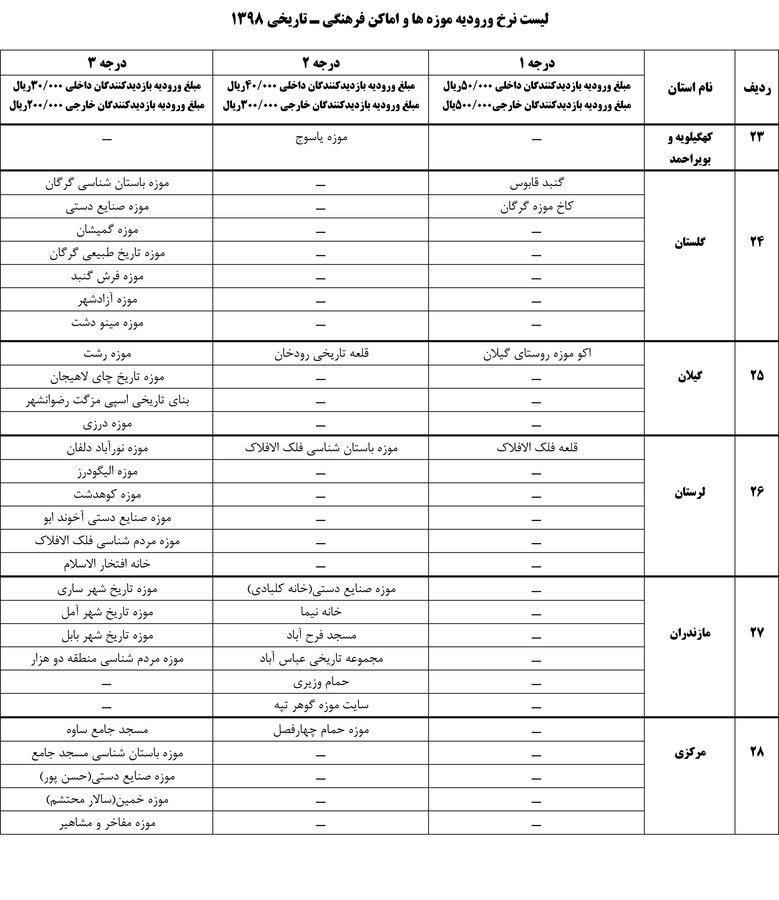 لیست نرخ ورودیه موزه ها و اماکن فرهنگی – تاریخی ۱۳۹۸
ردیف نام استان درجه ۱ درجه ۲ درجه ۳
مبلغ ورودیه بازدیدکنندگان داخلی ۵۰/۰۰۰ریال مبلغ ورودیه بازدیدکنندگان داخلی ۴۰/۰۰۰ریال مبلغ ورودیه بازدیدکنندگان داخلی ۳۰/۰۰۰ریال
مبلغ ورودیه بازدیدکنندگان خارجی ۵۰۰/۰۰۰یال مبلغ ورودیه بازدیدکنندگان خارجی ۳۰۰/۰۰۰ریال مبلغ ورودیه بازدیدکنندگان خارجی ۲۰۰/۰۰۰ریال
۲۳ کهگیلویه و بویراحمد – موزه یاسوج –
۲۴ گلستان گنبد قابوس – موزه باستان شناسی گرگان
کاخ موزه گرگان – موزه صنایع دستی
– – موزه گمیشان
– – موزه تاریخ طبیعی گرگان
– – موزه فرش گنبد
– – موزه آزادشهر
– – موزه مینو دشت
۲۵ گیلان اکو موزه روستای گیلان قلعه تاریخی رودخان موزه رشت
– – موزه تاریخ چای لاهیجان
– – بنای تاریخی اسپی مزگت رضوانشهر
– – موزه درزی
۲۶ لرستان قلعه فلک الافلاک موزه باستان شناسی فلک الافلاک موزه نورآباد دلفان
– – موزه الیگودرز
– – موزه کوهدشت
– – موزه صنایع دستی آخوند ابو
– – موزه مردم شناسی فلک الافلاک
– – خانه افتخار الاسلام
۲۷ مازندران – موزه صنایع دستی(خانه کلبادی) موزه تاریخ شهر ساری
– خانه نیما موزه تاریخ شهر آمل
– مسجد فرح آباد موزه تاریخ شهر بابل
– مجموعه تاریخی عباس آباد موزه مردم شناسی منطقه دو هزار
– حمام وزیری –
– سایت موزه گوهر تپه –
۲۸ مرکزی – موزه حمام چهارفصل مسجد جامع ساوه
– – موزه باستان شناسی مسجد جامع
– – موزه صنایع دستی(حسن پور)
– – موزه خمین(سالار محتشم)
– – موزه مفاخر و مشاهیر